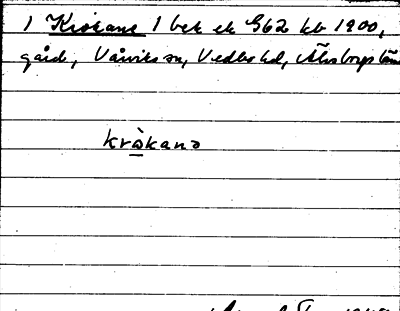 1 Kråkane 1 bek ek G62 kb 1900,
gård, Vårviks sn, Vedbo hd, Älvsborgs län
kràkanə